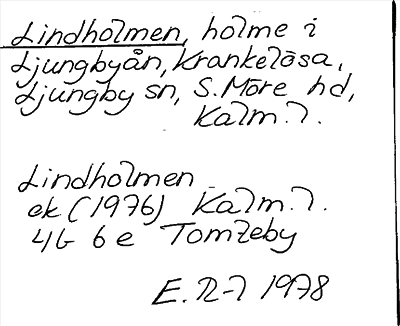 Lindholmen, holme i
Ljungbyån, Krankelösa,
Ljungby sn, S. Möre hd,
Kalm. l.
Lindholmen
ek (1976) Kalm. l.
4G 6e Tomteby
E. 1978